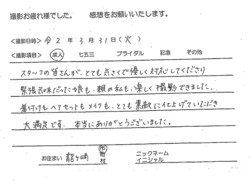 撮影お疲れ様でした。 感想をお願いいたします。
<撮影日時> 令 2 年 3 月 31 日 (火)
<撮影項目> 成人 七五三 ブライダル 記念 その他
スタッフの皆さんが、とても気さくで優しく対応してくださり
緊張気味だった娘も、親の私も、楽しく撮影できました。
着付けもヘアセットもメイクも、とても素敵に仕上げていただき
大満足です。本当にありがとうございました。
お住まい 龍ヶ崎 市 町 村
ニックネーム
イニシャル